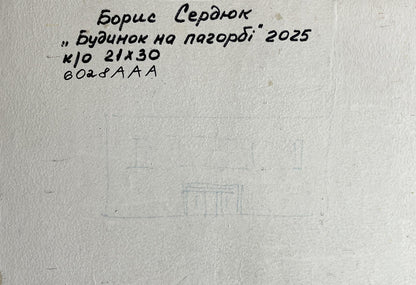 Борис Сердюк
„Будинок на пагорбі" 2025
к/о 21х30
6028ААА